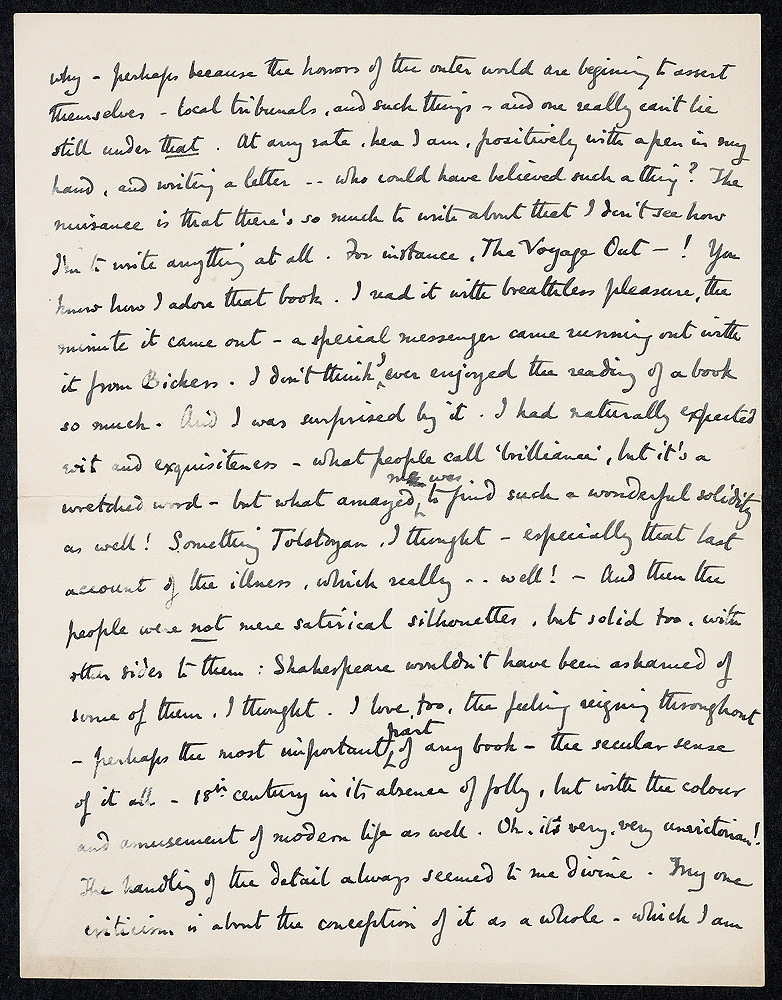 why – perhaps because the horrors of the outer world are begining to assert
themselves – local tribunals, and such things – and one really can't lie
still under that. At any rate, here I am, positively with a pen in my
hand, and writing a letter -- who could have believed such a thing? The
nuisance is that there's so much to write about that I don't see how
I'm to write anything at all. For instance, The Voyage Out – ! You
know how I adore that book. I read it with breathless pleasure, the
minute it came out – a special messenger came running out with
it from Bickers. I don't think I ever enjoyed the reading of a book
so much. And I was surprised by it. I had naturally expected
wit and exquisiteness – what people call 'brilliance', but it's a
wretched word – but what amazed me was to find such a wonderful solidity
as well! Something Tolstoyan, I thought – especially that last
account of the illness, which really -- well! – And then the
people were not mere satirical silhouettes, but solid too, with
other sides to them: Shakespeare wouldn't have been ashamed of
some of them, I thought. I love, too, the feeling reigning throughout
– perhaps the most important part of any book – the secular sense
of it all – 18th century in its absence of folly, but with the colour
and amusement of modern life as well. Oh, it's very, very unvictorian!
The handling of the detail always seemed to me divine. My one
criticism is about the conception of it as a whole – which I am